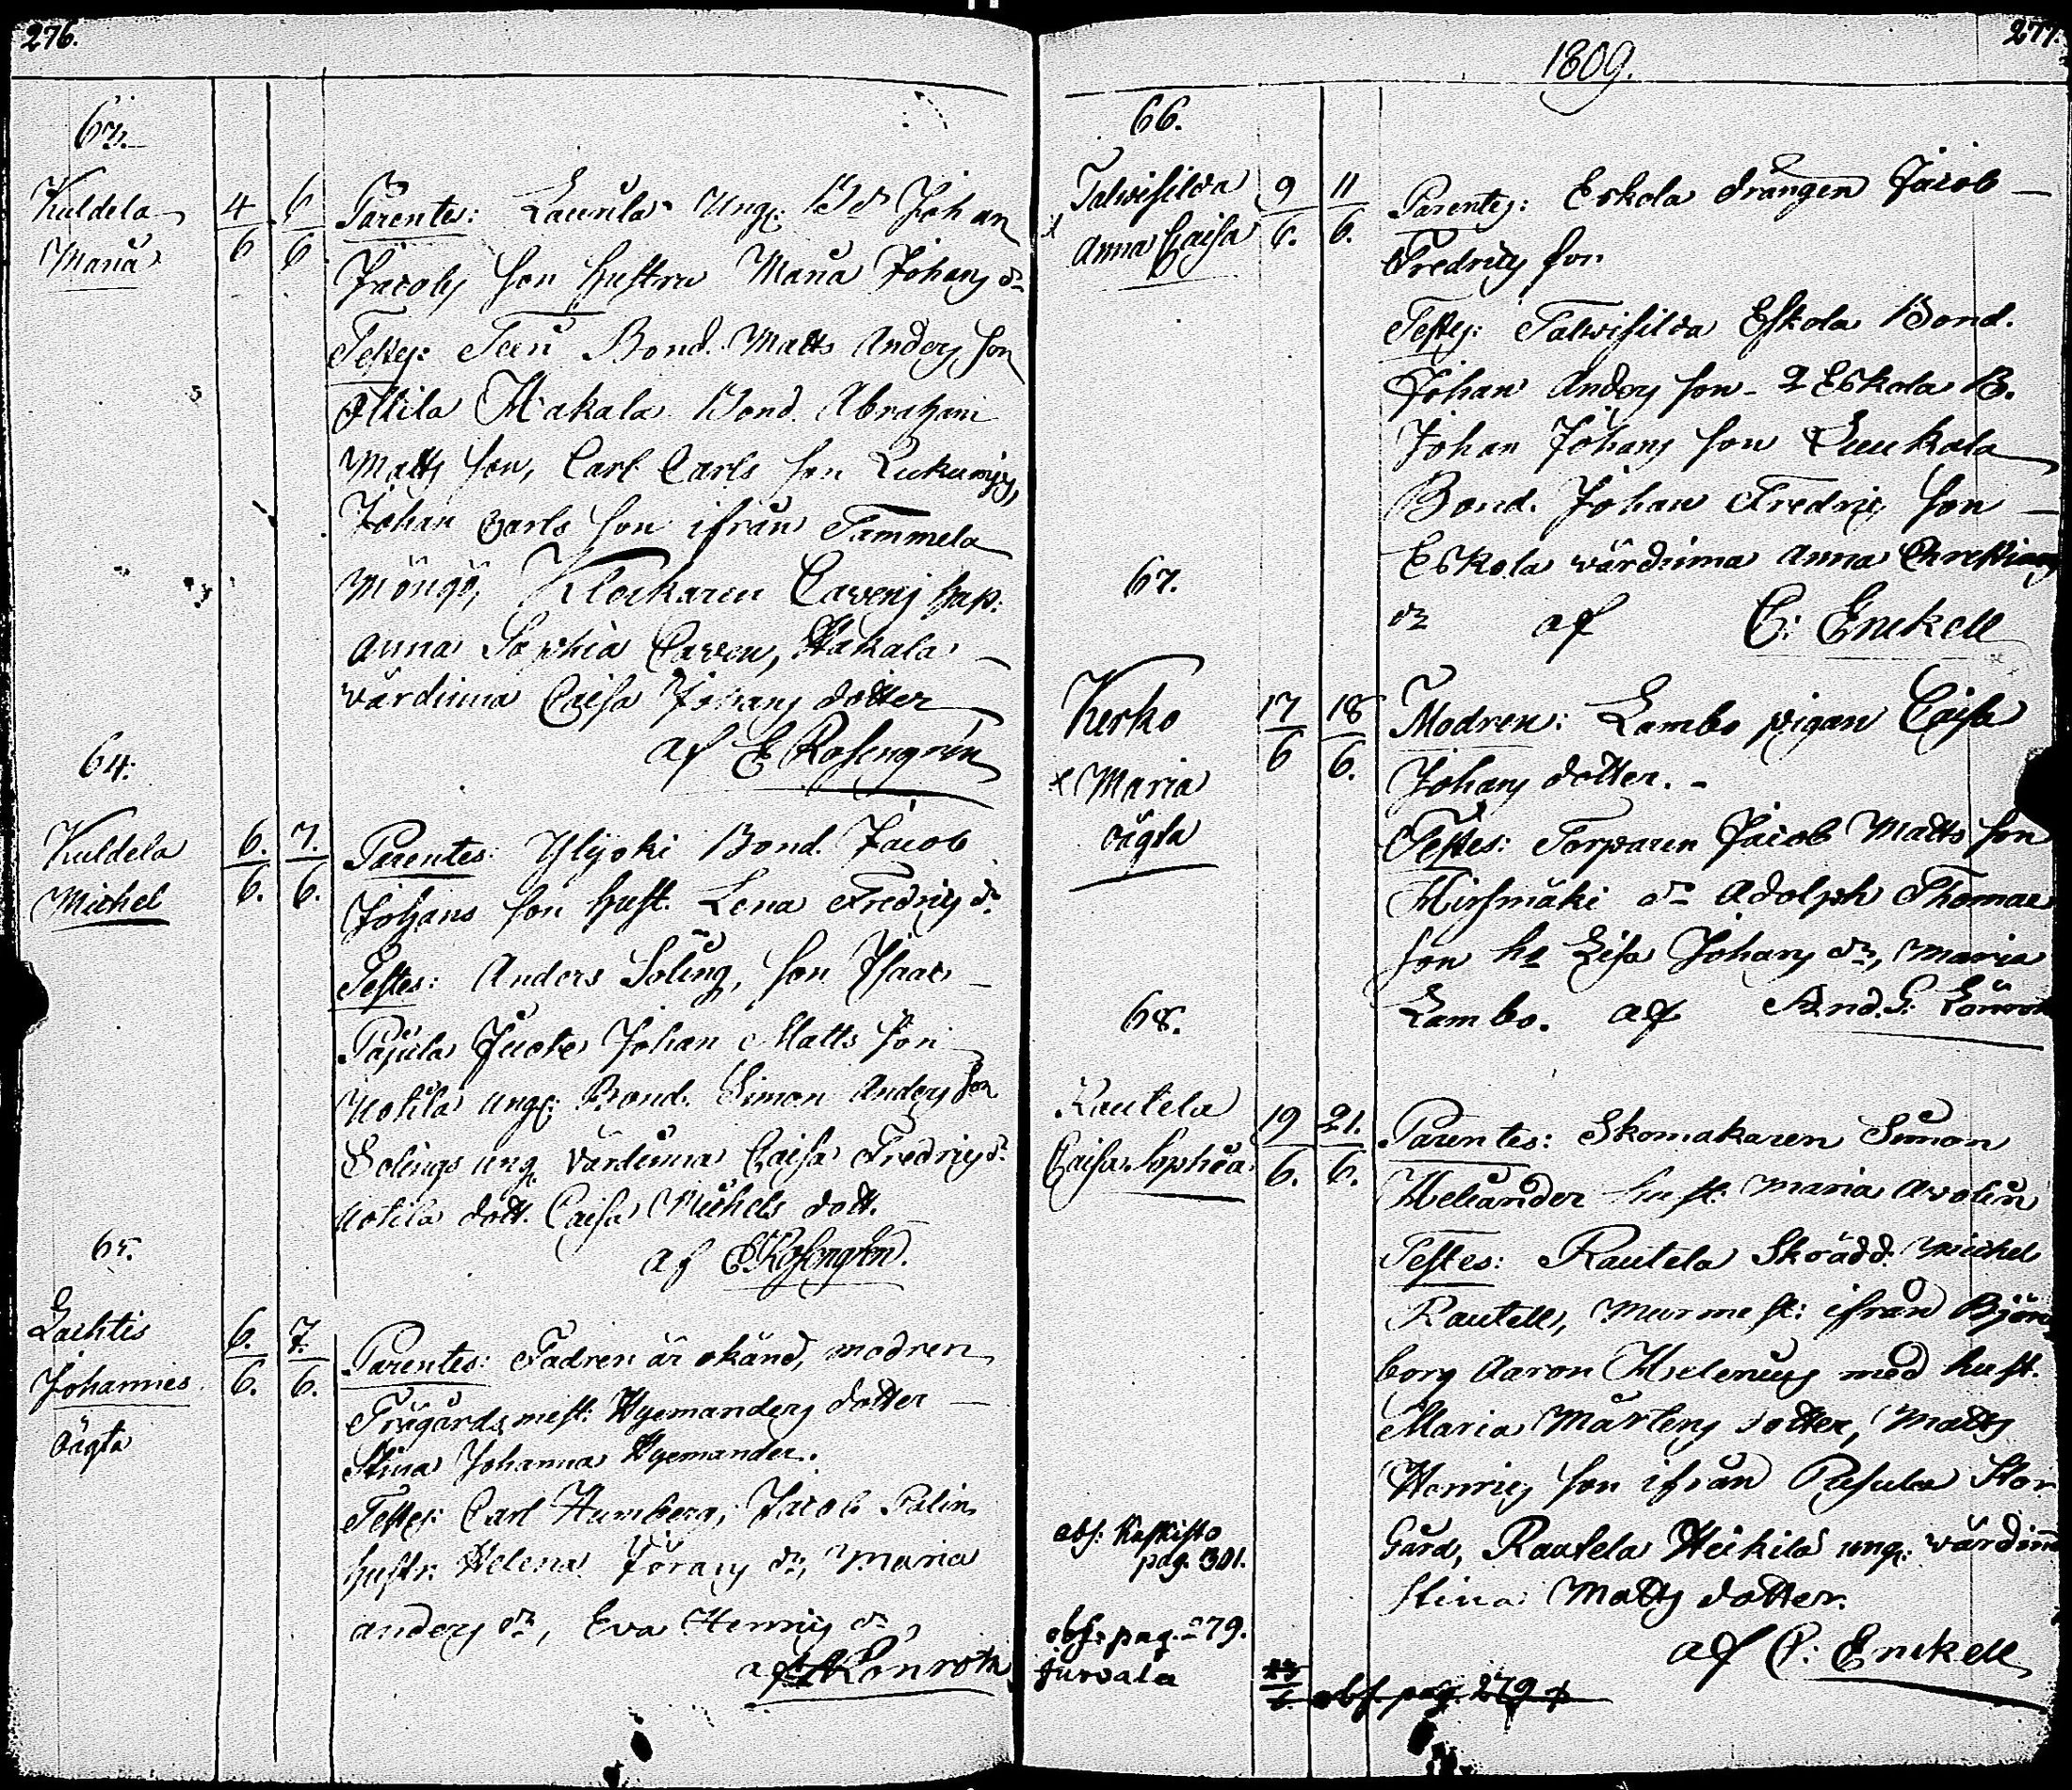 276.
63.
Kuldela
Maria
4/6
6/6
Parentes: Laurila Ung: Bd Johan
Jacobs son hustru Maria Johans dr
Testes: Bond. Matts Anders son
Ollila Hakala Bond. Abraham
Matts son, Carl Carls son
Johan Carls son ifrån Tammela
Klockaren Cavens
Anna Sophia Caven, Hakala
värdinna Caisa Johans dotter
af E Rosengren
64.
Kuldela
Michel
6./6.
7./6.
Parentes: Ylijoki Bond. Jacob
Johans son hust. Lena Fredrics dr
Testes: Anders Soling, son Isaac
Pajula Johan Matts son
Uotila ung: Bond. Simon Anders son
Solings ung värdinna Caisa Fredrics dr
Uotila dott. Caisa Michels dott.
af E Rosengren.
65.
Lachtis
Johannes
oägta
6./6.
7./6.
Parentes: Fadren är okänd, modren
Trägårds mest: Hyemanders dotter
Stina Johanna Hyemander.
Testes: Carl Humberg, Jacob Palin
hustr: Helena Jörans dr, Maria
Anders dr, Eva Henrics dr,
af Lönroth
277.
1809.
66.
Talwisilda
Anna Caisa
9/6.
11/6.
Parentes: Eskola drängen Jacob
Fredrics son
Testes: Talwisilda Eskola Bond.
Johan Anders son - 2 Eskola B.
Johan Johans son Luukala
Bond. Johan Fredrics son
Eskola värdinna Anna Christians
dr af C: Enckell
67.
Kerko
x Maria
oägta
17/6
18/6.
Modren: Lambo pigan Caisa
Johans dotter. -
Testes: Torparen Jacob Matts son
Hirsmäki do Adolph Thomae
son h Lisa Johans dr, Maria
Lambo. af And. G: Lönroth
68.
Rautela
Caisa Sophia
19/6.
21./6.
Parentes: Skomakaren Simon
Heliander hust: Maria Avolin
Testes: Rautela Skrädd. Michel
Rautell, murmest: ifrån Björne
borg Aaron Helenius med hust.
Maria Mårtens dotter, Matts
Henrics son ifrån Pusula Stor
Gård, Rautela Heikilä ung: värdinna
Stina Matts dotter.
af C: Enckell
obs: Kaskisto
pag. 301.
obs: pag. 279.
Jurvala
obs. pag. 279